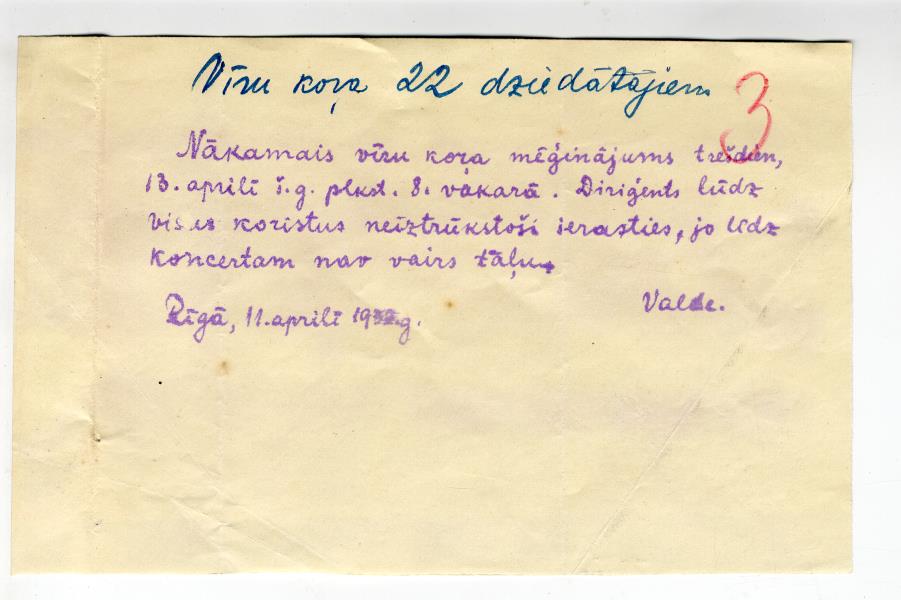 Vīru koŗa 22 dziedātājiem
3
Nākamais vīru koŗa mēģinājums trešdien,
13. aprilī š.g. plkst. 8. vakarā. Diriģents lūdz
visus koristus neiztrūkstoši ierasties, jo līdz
koncertam nav vairs tāļu.
Valde.
Rīgā, 11. aprilī g.